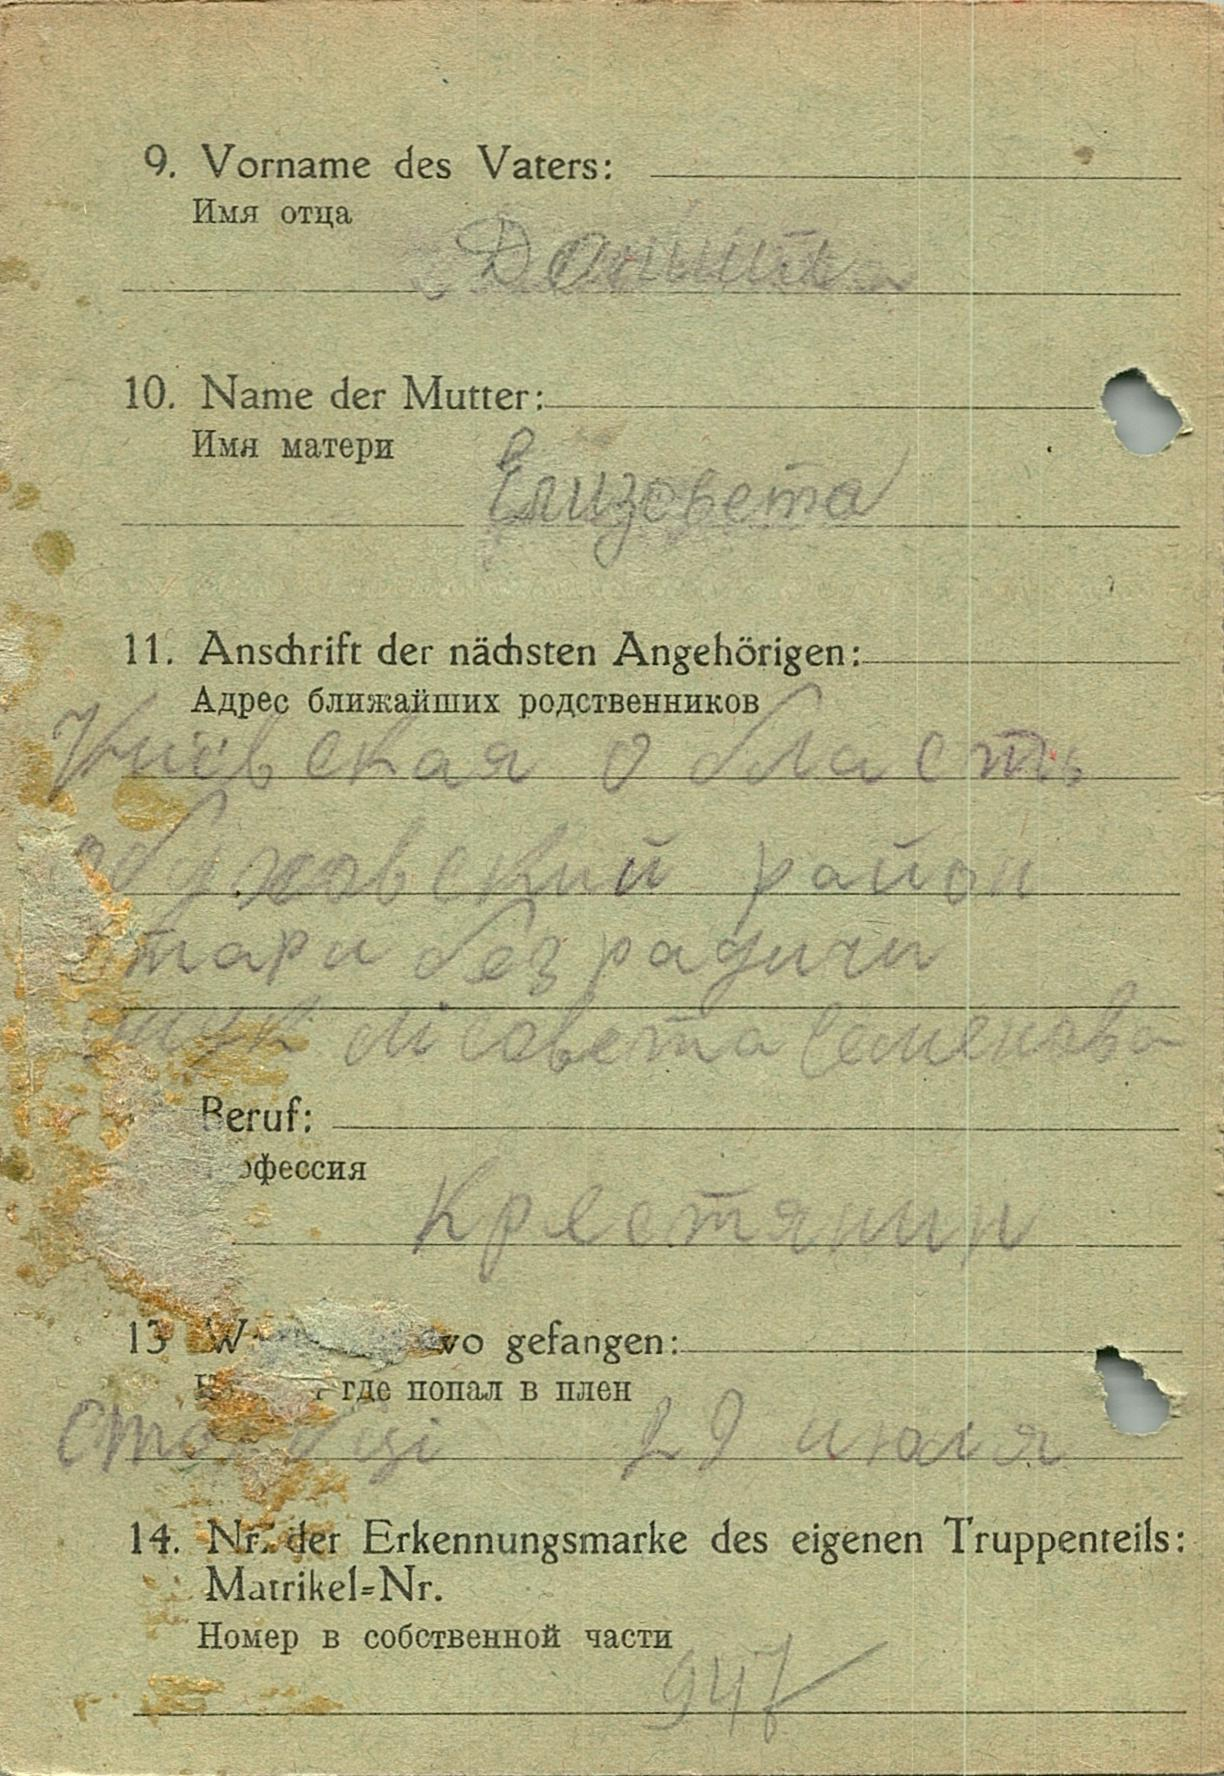 9. Vorname des Vaters:
Имя отца
10. Name der Mutter:
Имя матери
Елизовета
11. Anschrift der nächsten Angehörigen:
Адрес ближайших родственников
Киевская область
обуховский район
Стари безрадичи
лісовета Семеновна
Beruf:
офессия
Крестянин
13 W wo gefangen:
где попал в плен
29 июля
14. Nr. der Erkennungsmarke des eigenen Truppenteils:
Matrikel=Nr.
Номер в собственной части
947